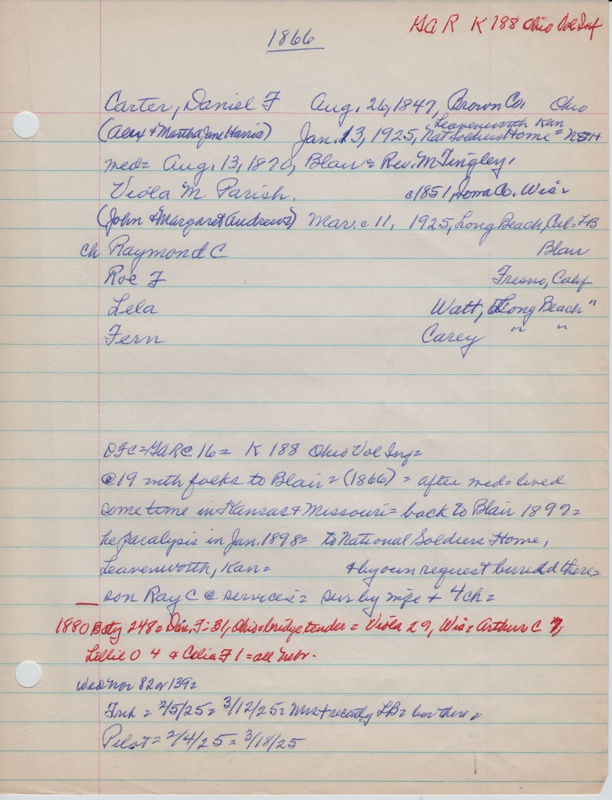 GAR K 188 Ohio Vol Inf
1866
Carter, Daniel F Aug. 26, 1847, Brown Co. Ohio
(Alex + Martha Jane Harris) Jan. 13, 1925, Nat Soldiers Home = NSH
Leavenworth Kan
med= Aug. 13, 1870, Blair = Rev. M Tingley.
Viola M Parish. c1851, Iowa Co. Wis =
(John + Margaret Andrews) Mar. c 11, 1925, Long Beach, Cal = LB
ch Raymond C Blair
Roe F Fresno, Calif
Lela Watt, Long Beach "
Fern Carey " "
DFC = GAR @ 16 = K 188 Ohio Vol Inf =
@ 19 with folks to Blair = (1866) = after med = lived
some time in Kansas + Missouri = back to Blair 1897 =
he paralysis in Jan. 1898 = to National Soldiers Home,
Leavenworth, Kan = + by own request buried there =
son Ray C @ services = sur by wife + 4 ch =
1880 248 = Dan. F = 31, Ohio = bridge tender = Viola 29, Wis = Arthur C 7,
Lillie O 4 + Celia F 1 = all Nebr.
Wed Nov 82 or 139 =
= 2/5/25 = 3/12/25 = Mrs + recently LB = bur there =
Pilot = 2/4/25 = 3/18/25